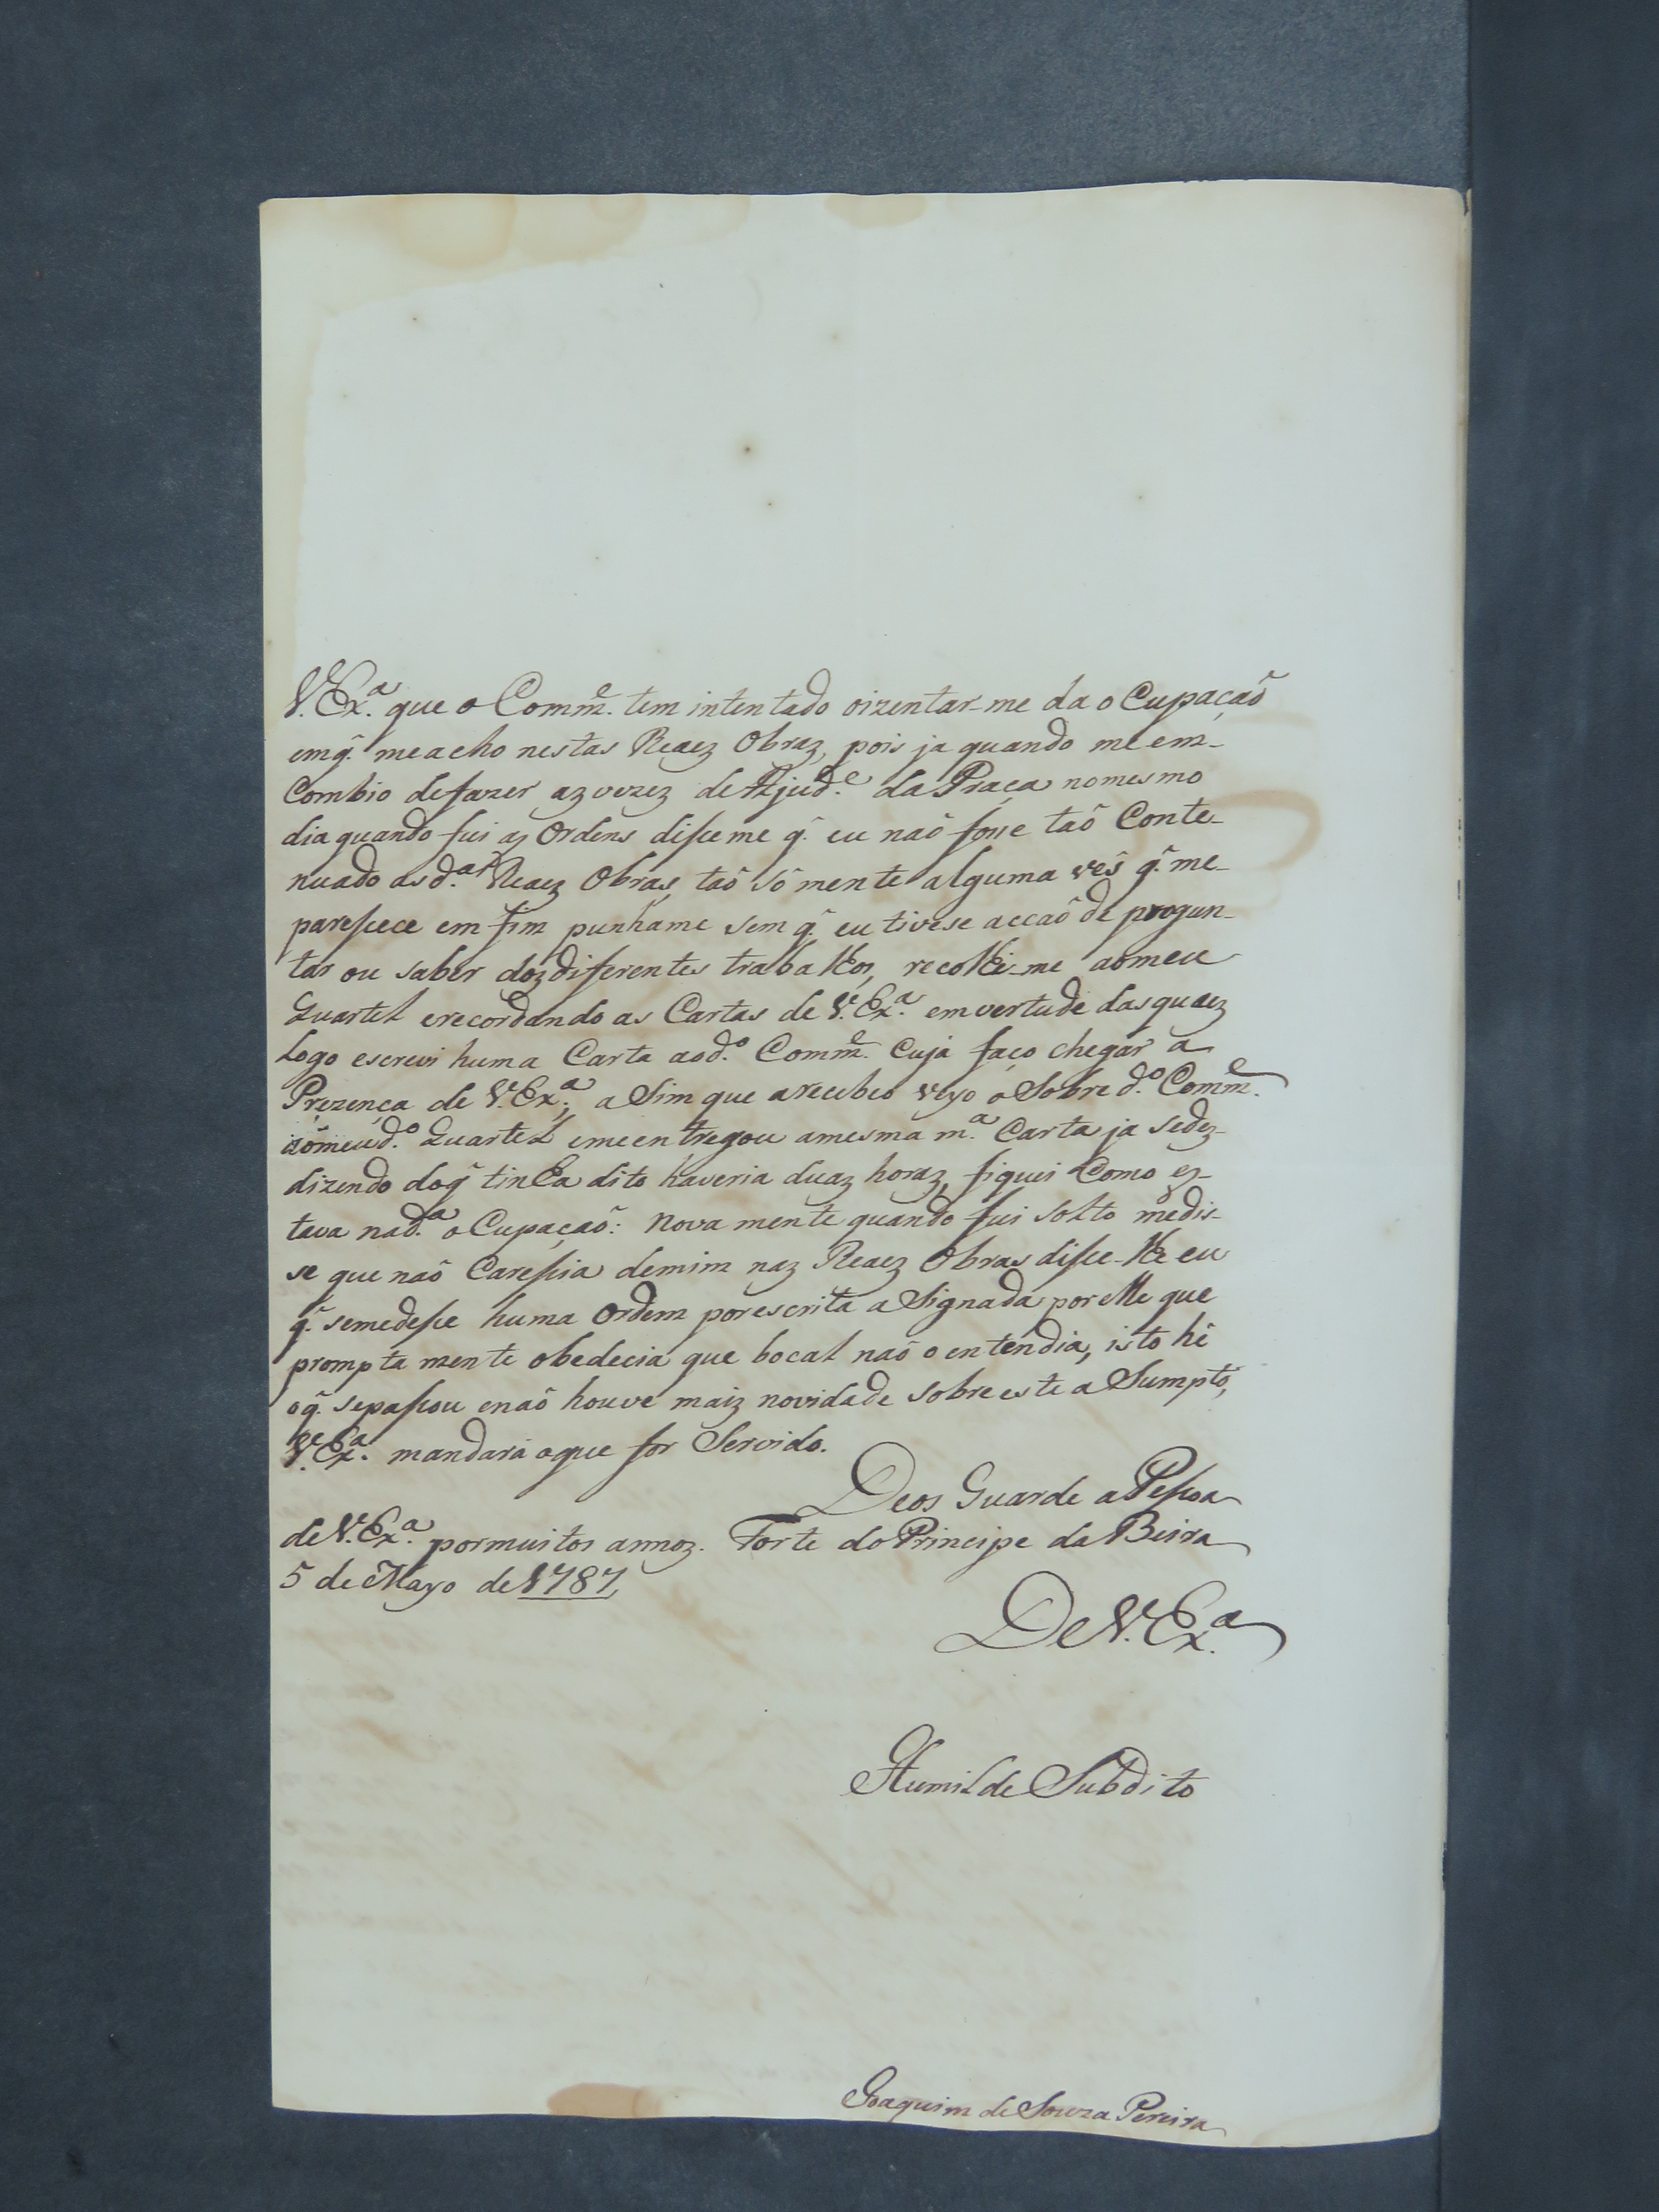 V. Ex.ª que o Comm.e tem intentado oizentar-me da o Cupaçaõ
emq̃. meacho nestas Reaez Obraz, pois ja quando me em-
Combio defazer az vezez de Ajud.e da Praça nomesmo
dia quando fui az Ordens disseme q̃. eu naõ fosse taõ Conte-
nuado as d.as Reaez Obras, taõ sômente alguma vês q̃. me-
paressece em fim punhame sem q̃. eu tivese accaõ de progun-
tar ou saber dozdiferentes trabalhos, recolhi-me aomeu
Quartel erecordando as Cartas de V. Ex.ª emvertude dasquaez
Logo escrevi huma Carta aod.º Comm.e Cuja faço chegar a
Prezença de V. Ex.ª; aSim que arecebeo veyo o Sobre d.º Comm.e
aômeud.º Quartel emeentregou amesma m.ª Carta ja sedez-
dizendo doq̃ tinha dito haveria duaz horaz, fiquei Como ez-
tava nad.ª oCupaçaõ: Nova mente quando fui solto medis-
se que naõ Caressia demim naz Reaez Obras disse-lhe eu
q̃. semedesse huma Ordem porescrita aSignada porelle que
prompta mente obedecia que bocal naõ o entendia, isto hê
oq̃. sepassou enaõ houve maiz novidade sobreeste aSumpto,
V. Ex.ª mandará oque for Servido.
Deos Guarde aPessoa
deV. Ex.ª pormuitos annoz. Forte doPrincipe daBeira
5 de Mayo de 1787
DeV. Ex.ª
Humilde Subdito
Joaquim de Souza Pereira